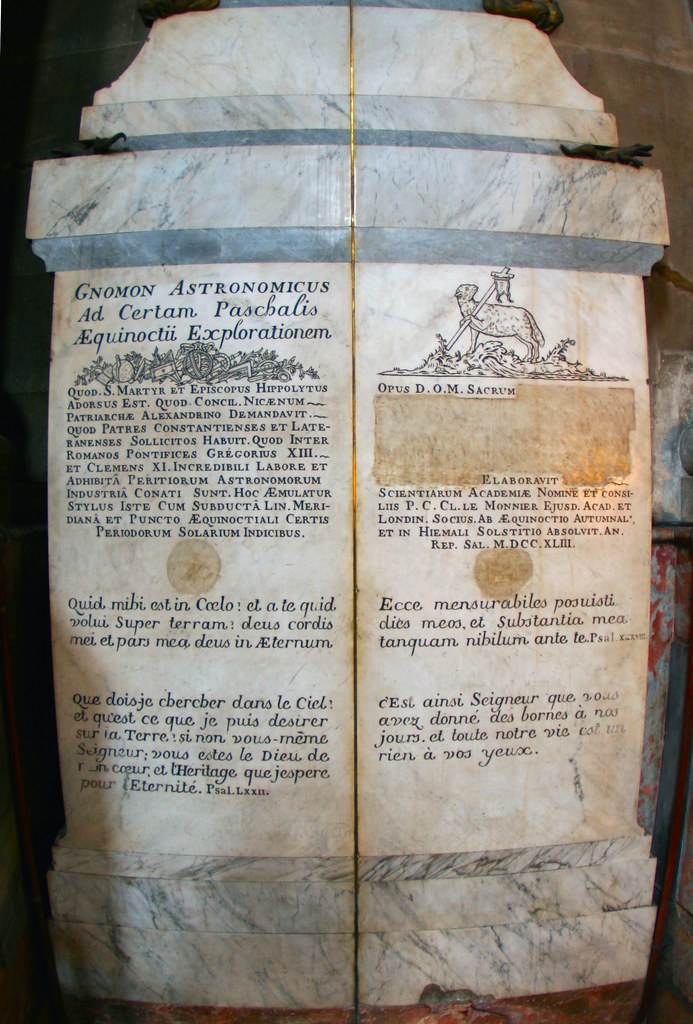 GNOMON ASTRONOMICUS
Ad Certam Paschalis
Æquinoctii Explorationem
QUOD. S. MARTYR ET EPISCOPUS HIPPOLYTUS
ADORSUS EST. QUOD. CONCIL. NICÆNUM
PATRIARCHÆ ALEXANDRINO DEMANDAVIT.
QUOD PATRES CONSTANTIENSES ET LATE-
RANENSES SOLLICITOS HABUIT. QUOD INTER
ROMANOS PONTIFICES GREGORIUS XIII.
ET CLEMENS XI. INCREDIBILI LABORE ET
ADHIBITÂ PERITIORUM ASTRONOMORUM
INDUSTRIÂ CONATI SUNT. HOC ÆMULATUR
STYLUS ISTE CUM SUBDUCTÂ LIN. MERI-
DIANÂ ET PUNCTO ÆQUINOCTIALI CERTIS
PERIODORUM SOLARIUM INDICIBUS.
Quid mihi est in Cœlo? et a te quid
volui Super terram? deus cordis
mei et pars mea deus in Æternum
Que dois-je chercher dans le Ciel?
et qu'est ce que je puis desirer
sur la Terre? si non vous-même
Seigneur; vous estes le Dieu de
cœur, et l'Heritage que j'espere
pour l'Eternité. Psal. LXXII.
OPUS D. O. M. SACRUM
ELABORAVIT
SCIENTIARUM ACADEMIÆ NOMINE ET CONSI-
LIIS P. C. CL. LE MONNIER EJUSD. ACAD. ET
LONDIN. SOCIUS. AB ÆQUINOCTIO AUTUMNAL'.
ET IN HIEMALI SOLSTITIO ABSOLVIT. AN.
REP. SAL. M.DCC.XLIII.
Ecce mensurabiles posuisti
dies meos, et Substantia mea
tanquam nihilum ante te. Psal.
c'Est ainsi Seigneur que vous
avez donné des bornes à nos
jours. et toute notre vie est un
rien à vos yeux.